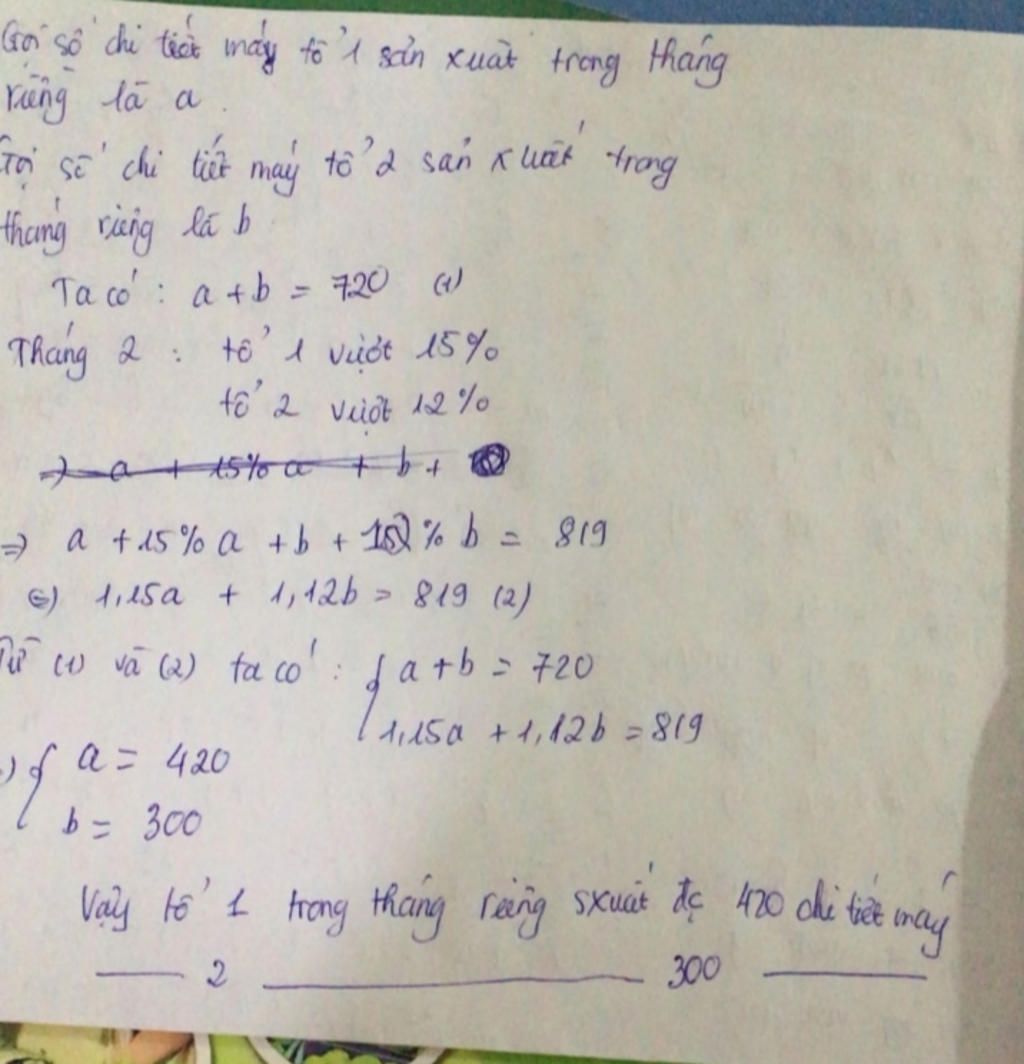 Gọi số chi tiết máy tổ 1 sản xuất trong tháng
riêng là a.
Gọi số chi tiết máy tổ 2 sản xuất trong
tháng riêng là b
Ta có: a + b = 720 (1)
Tháng 2: tổ 1 vượt 15%
tổ 2 vượt 12%
=) a + 15% a + b +
=) a + 15% a + b + 12% b = 819
(=) 1,15a + 1,12b = 819 (2)
Từ (1) và (2) ta có: { a + b = 720
1,15a + 1,12b = 819
=) { a = 420
b = 300
Vậy tổ 1 trong tháng riêng sxuất đc 420 chi tiết máy
——— 2 ——————— 300 ———